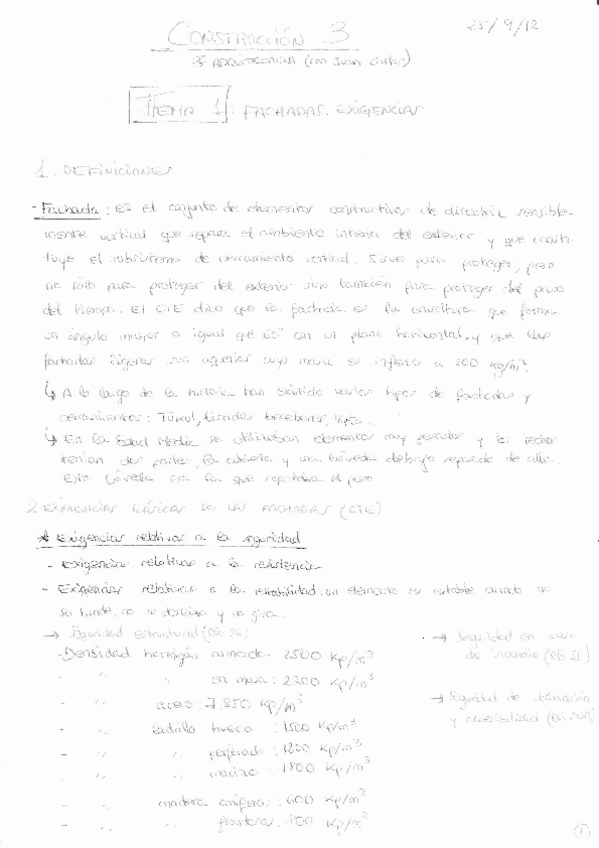 CONSTRUCCIÓN 3
25/9/12
3º ARQUITECTURA (con Juan Carlos)
TEMA 1: FACHADAS. EXIGENCIAS
1. DEFINICIONES
- Fachada: es el conjunto de elementos constructivos de directriz sensible-
mente vertical que separa el ambiente interior del exterior y que consti-
tuye el subsistema de cerramiento vertical. Sirve para proteger, pero
no sólo para proteger del exterior sino también para proteger del paso
del tiempo. El CTE dice que la fachada es la envoltura que forma
un ángulo mayor o igual que 60º con un plano horizontal, y que las
fachadas ligeras son aquellas cuya masa es inferior a 200 kg/m².
↳ A lo largo de la historia han existido varios tipos de fachadas y
cerramientos: Túnel, tiendas bereberes,
↳ En la Edad Media se utilizaban elementos muy pesados y los techos
tenían dos partes, la cubierta y una bóveda debajo separada de ella.
Esta bóveda era la que soportaba el peso.
2. EXIGENCIAS BÁSICAS DE LAS FACHADAS (CTE)
* Exigencias relativas a la seguridad
- Exigencias relativas a la resistencia
- Exigencias relativas a la estabilidad, un elemento es estable cuando no
se hunde, no se desliza y no gira.
→ Seguridad estructural (DB SE)
→ Seguridad en caso
de incendio (DB SI)
- Densidad hormigón armado: 2500 Kp/m³
- " " en masa: 2300 Kp/m³
- " acero: 7.850 Kp/m³
→ Seguridad de utilización
y accesibilidad (DB SUA)
- " ladrillo hueco: 1500 Kp/m³
- " " perforado: 1200 Kp/m³
- " " macizo: 1800 Kp/m³
- " madera coníferas: 600 Kp/m³
- " " frondosas: 800 Kp/m³
1